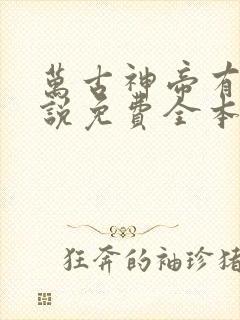 萬古神帝有
說免費全本
狂奔的袖珍猪